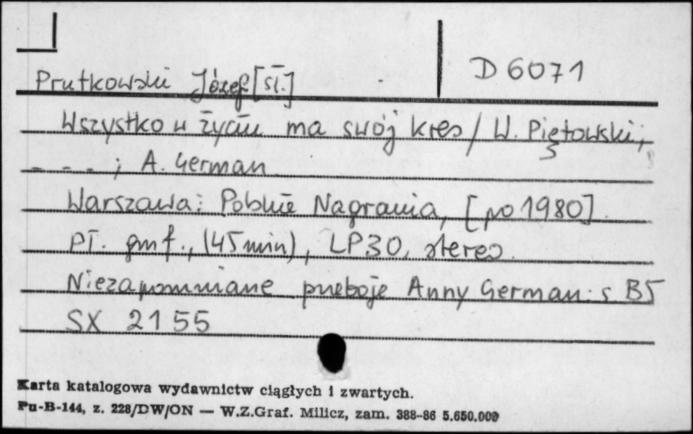 D 6071
Prutkowski Józef [sł.]
Wszystko w życiu ma swój kres / W. Piętowski;
- - - ; A. German
Warszawa: Polskie Nagrania, [po 1980].
Pł. gmf., (45 min), LP30, stereo.
Niezapomniane przeboje Anny German: s B5
SX 2155
Karta katalogowa wydawnictw ciągłych i zwartych.
Pu-B-144, z. 228/DW/ON — W.Z.Graf. Milicz, zam. 388-86 5.650.000